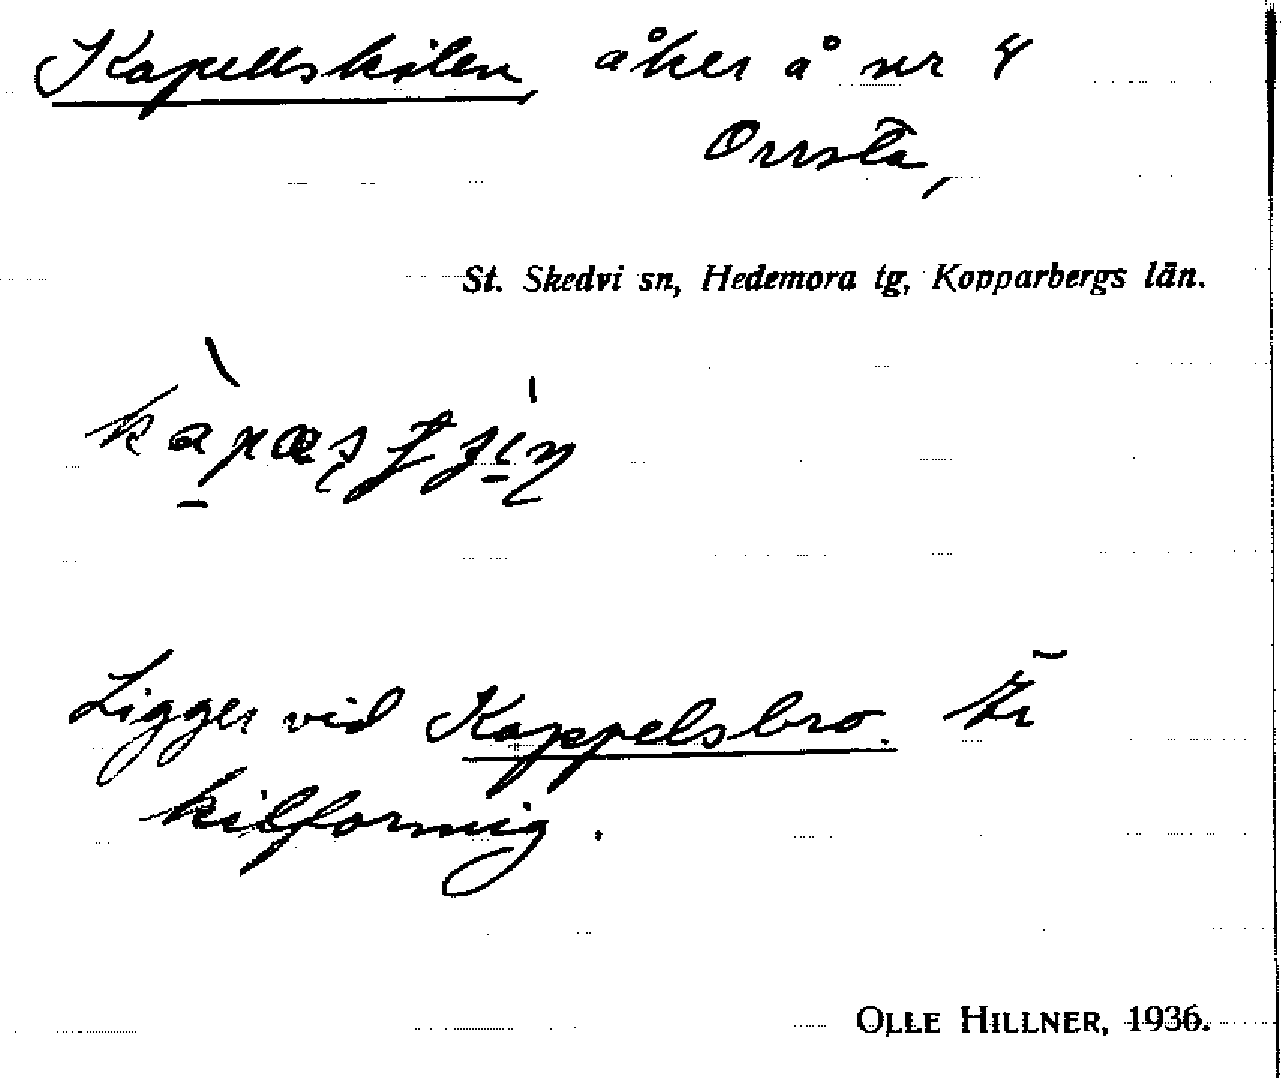 Kapellskilen, åker å nr 4
Orrsta,
St. Skedvi sn, Hedemora tg, Kopparbergs län.
Ligger vid Kappelsbro. Är
kilformig.
OLLE HILLNER, 1936.